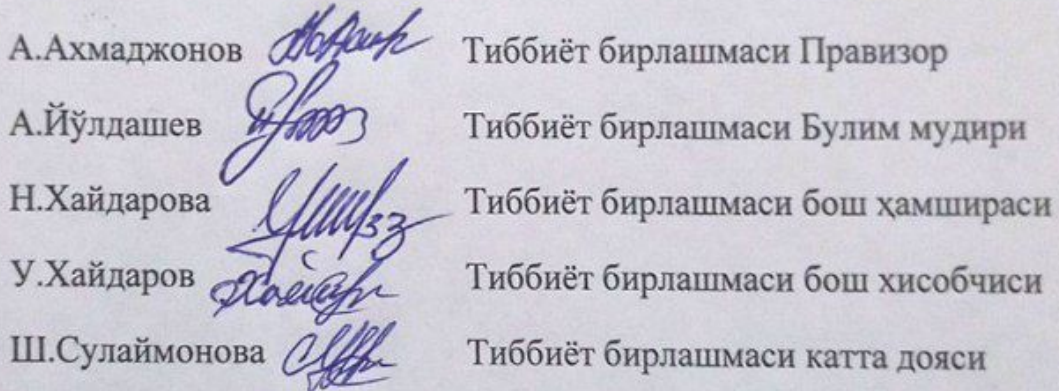 А.Ахмаджонов Тиббиёт бирлашмаси Правизор
А.Йўлдашев Тиббиёт бирлашмаси Булим мудири
Н.Хайдарова Тиббиёт бирлашмаси бош ҳамшираси
У.Хайдаров Тиббиёт бирлашмаси бош хисобчиси
Ш.Сулаймонова Тиббиёт бирлашмаси катта дояси